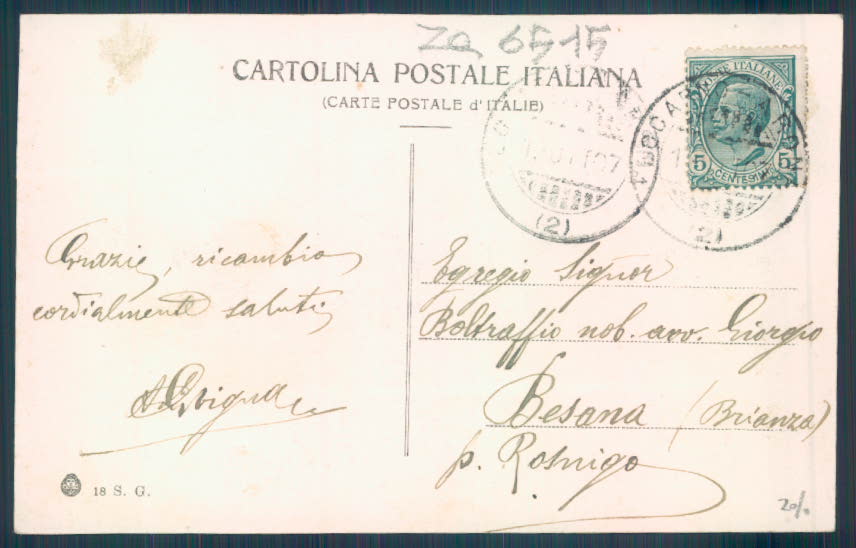 ZQ 6515
CARTOLINA POSTALE ITALIANA
(CARTE POSTALE d'ITALIE)
POSTE ITALIANE
5 5
CENTESIMI
(2)
(2)
Grazie, ricambio
cordialmente saluti
Egregio Signor
Boltraffio nob. avv. Giorgio
Besana (Brianza)
p. Rosnigo
18 S. G.
20/.